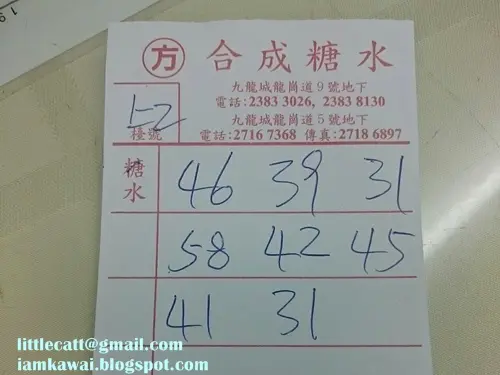 方 合成糖水
九龍城龍崗道9號地下
電話:2383 3026, 2383 8130
九龍城龍崗道5號地下
電話:2716 7368 傳真:2718 6897
52
檯號
糖水
46 39 31
58 42 45
41 31
littlecatt@gmail.com
iamkawai.blogspot.com